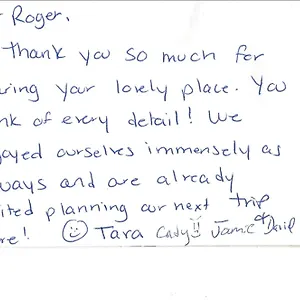 Roger,
thank you so much for
ring your lovely place. You
nk of every detail! We
oyed ourselves immensely as
ways and are already
ited planning our next trip
re! Tara Cody!! Jamie & David